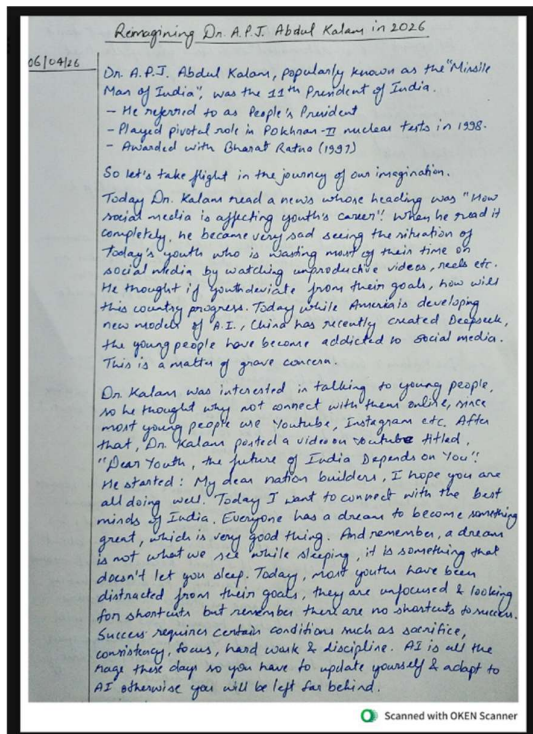 Reimagining Dr. A.P.J. Abdul Kalam in 2026
06/04/26
Dr. A.P.J. Abdul Kalam, popularly known as the "Missile
Man of India", was the 11th President of India.
- He referred to as People's President
- Played pivotal role in Pokhran-II nuclear tests in 1998.
- Awarded with Bharat Ratna (1997)
So let's take flight in the journey of our imagination.
Today Dr. Kalam read a news whose heading was "How
social media is affecting youth's career". When he read it
completely, he became very sad seeing the situation of
today's youth who is wasting most of their time on
social media by watching unproductive videos, reels etc.
He thought if youth deviate from their goals, how will
this country progress. Today while America is developing
new models of A.I., China has recently created Deepseek,
the young people have become addicted to social media.
This is a matter of grave concern.
Dr. Kalam was interested in talking to young people,
so he thought why not connect with them online, since
most young people use Youtube, Instagram etc. After
that, Dr. Kalam posted a video on Youtube titled,
"Dear Youth, the future of India Depends on You".
He started: My dear nation builders, I hope you are
all doing well. Today I want to connect with the best
minds of India. Everyone has a dream to become something
great, which is very good thing. And remember, a dream
is not what we see while sleeping, it is something that
doesn't let you sleep. Today, most youths have been
distracted from their goals, they are unfocused & looking
for shortcuts but remember there are no shortcuts to success.
Success requires certain conditions such as sacrifice,
consistency, focus, hard work & discipline. AI is all the
rage these days so you have to update yourself & adapt to
AI otherwise you will be left far behind.
Scanned with OKEN Scanner